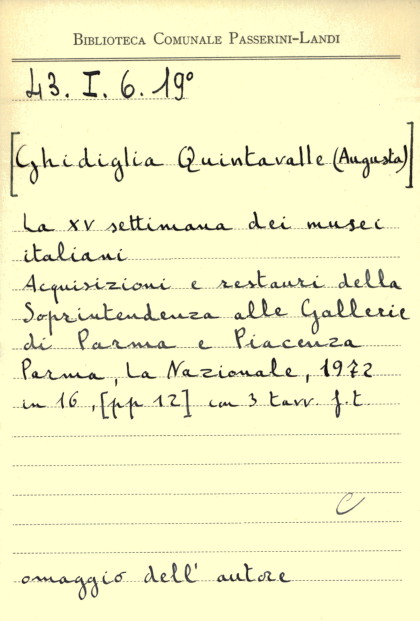 BIBLIOTECA COMUNALE PASSERINI-LANDI
43. I. 6. 19°
[Ghidiglia Quintavalle (Augusta)]
La XV settimana dei musei
italiani
Acquisizioni e restauri della
Soprintendenza alle Gallerie
di Parma e Piacenza
Parma, La Nazionale, 1972
in 16, [pp 12] con 3 tavv. f.t.
C
omaggio dell' autore